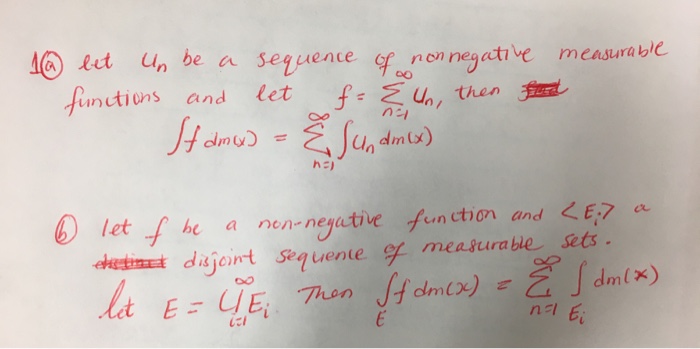 1(a) let Un be a sequence of nonnegative measurable
functions and let f = ∑_{n=1}^{∞} Un, then
∫f dm(x) = ∑_{n=1}^{∞} ∫Un dm(x)
(b) let f be a non-negative function and <Ei> a
disjoint sequence of measurable sets.
let E = ⋃_{i=1}^{∞} Ei. Then ∫_E f dm(x) = ∑_{n=1}^{∞} ∫_{Ei} dm(x)